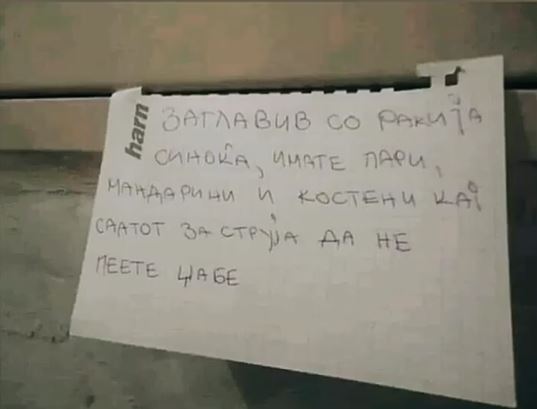 harn
ЗАГЛАВИВ СО РАКИЈА
СИНОЌА, ИМАТЕ ПАРИ,
МАНДАРИНИ И КОСТЕНИ КАЈ
СААТОТ ЗА СТРУЈА ДА НЕ
ПЕЕТЕ ЏАБЕ